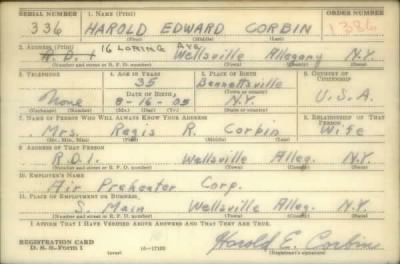 SERIAL NUMBER 1. NAME (Print) ORDER NUMBER
336 HAROLD EDWARD CORBIN 1386
(First) (Middle) (Last)
2. ADDRESS (Print) 16 LORING AVE
R. D. 1 Wellsville Allegany N.Y.
(Number and street or R. F. D. number) (Town) (County) (State)
3. TELEPHONE 4. AGE IN YEARS 5. PLACE OF BIRTH 6. COUNTRY OF CITIZENSHIP
35 Bennettsville
DATE OF BIRTH (Town or county)
None 8-16-05 N.Y. U.S.A.
(Exchange) (Number) (Mo.) (Day) (Yr.) (State or country)
7. NAME OF PERSON WHO WILL ALWAYS KNOW YOUR ADDRESS 8. RELATIONSHIP OF THAT PERSON
Mrs. Regis R. Corbin Wife
(Mr., Mrs., Miss) (First) (Middle) (Last)
9. ADDRESS OF THAT PERSON
R.D.1. Wellsville Alleg. N.Y.
(Number and street or R. F. D. number) (Town) (County) (State)
10. EMPLOYER'S NAME
Air Preheater Corp.
11. PLACE OF EMPLOYMENT OR BUSINESS
S. Main Wellsville Alleg. N.Y.
(Number and street or R. F. D. number) (Town) (County) (State)
I AFFIRM THAT I HAVE VERIFIED ABOVE ANSWERS AND THAT THEY ARE TRUE.
REGISTRATION CARD
D. S. S. Form 1 (over) Harold E. Corbin
(Registrant's signature)